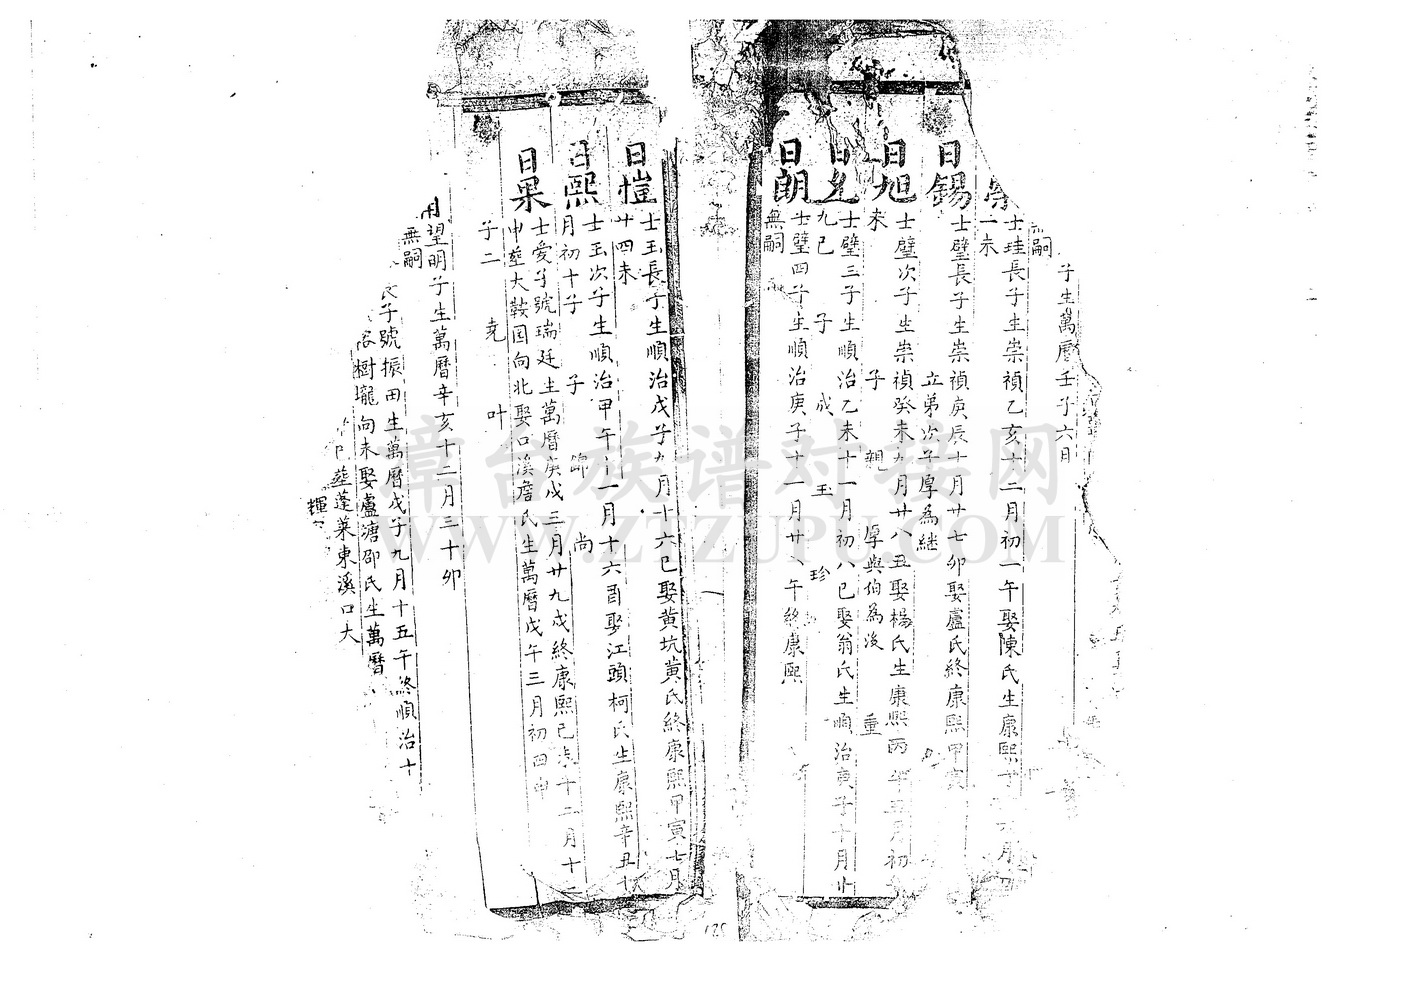 子生萬曆壬子六月
無嗣
崇
士珪長子生崇禎乙亥十二月初一午娶陳氏生康熙
一未
日錫
士璧長子生崇禎庚辰十月廿七卯娶盧氏終康熙甲寅
立弟次子厚為継
日旭
士璧次子生崇禎癸未九月廿八丑娶楊氏生康熙丙午五月初
未 子 親 厚與伯為後 重
日
士璧三子生順治乙未十一月初八巳娶翁氏生順治庚子十月廿
九巳 子 成 玉 珍
日朗
士璧四子生順治庚子十一月廿八午終康熙
無嗣
125
日愷
士玉長子生順治戊子九月十六巳娶黃坑黃氏終康熙甲寅七月
廿四未
日熙
士玉次子生順治甲午十一月十六酉娶江頭柯氏生康熙辛丑十
月初十子 子 錦 尚
日果
士愛子號瑞廷生萬曆庚戌三月廿九戌終康熙己未十二月十二
申塟大鞍囯向北娶口溪詹氏生萬曆戊午三月初四申
子二 尭 叶
望明子生萬曆辛亥十二月三十卯
無嗣
子號振田生萬曆戊子九月十五午終順治十
樹壠向未娶盧溏邵氏生萬曆
塟蓬萊東溪口大
輝
章台族谱对接网
WWW.ZTZUPU.COM